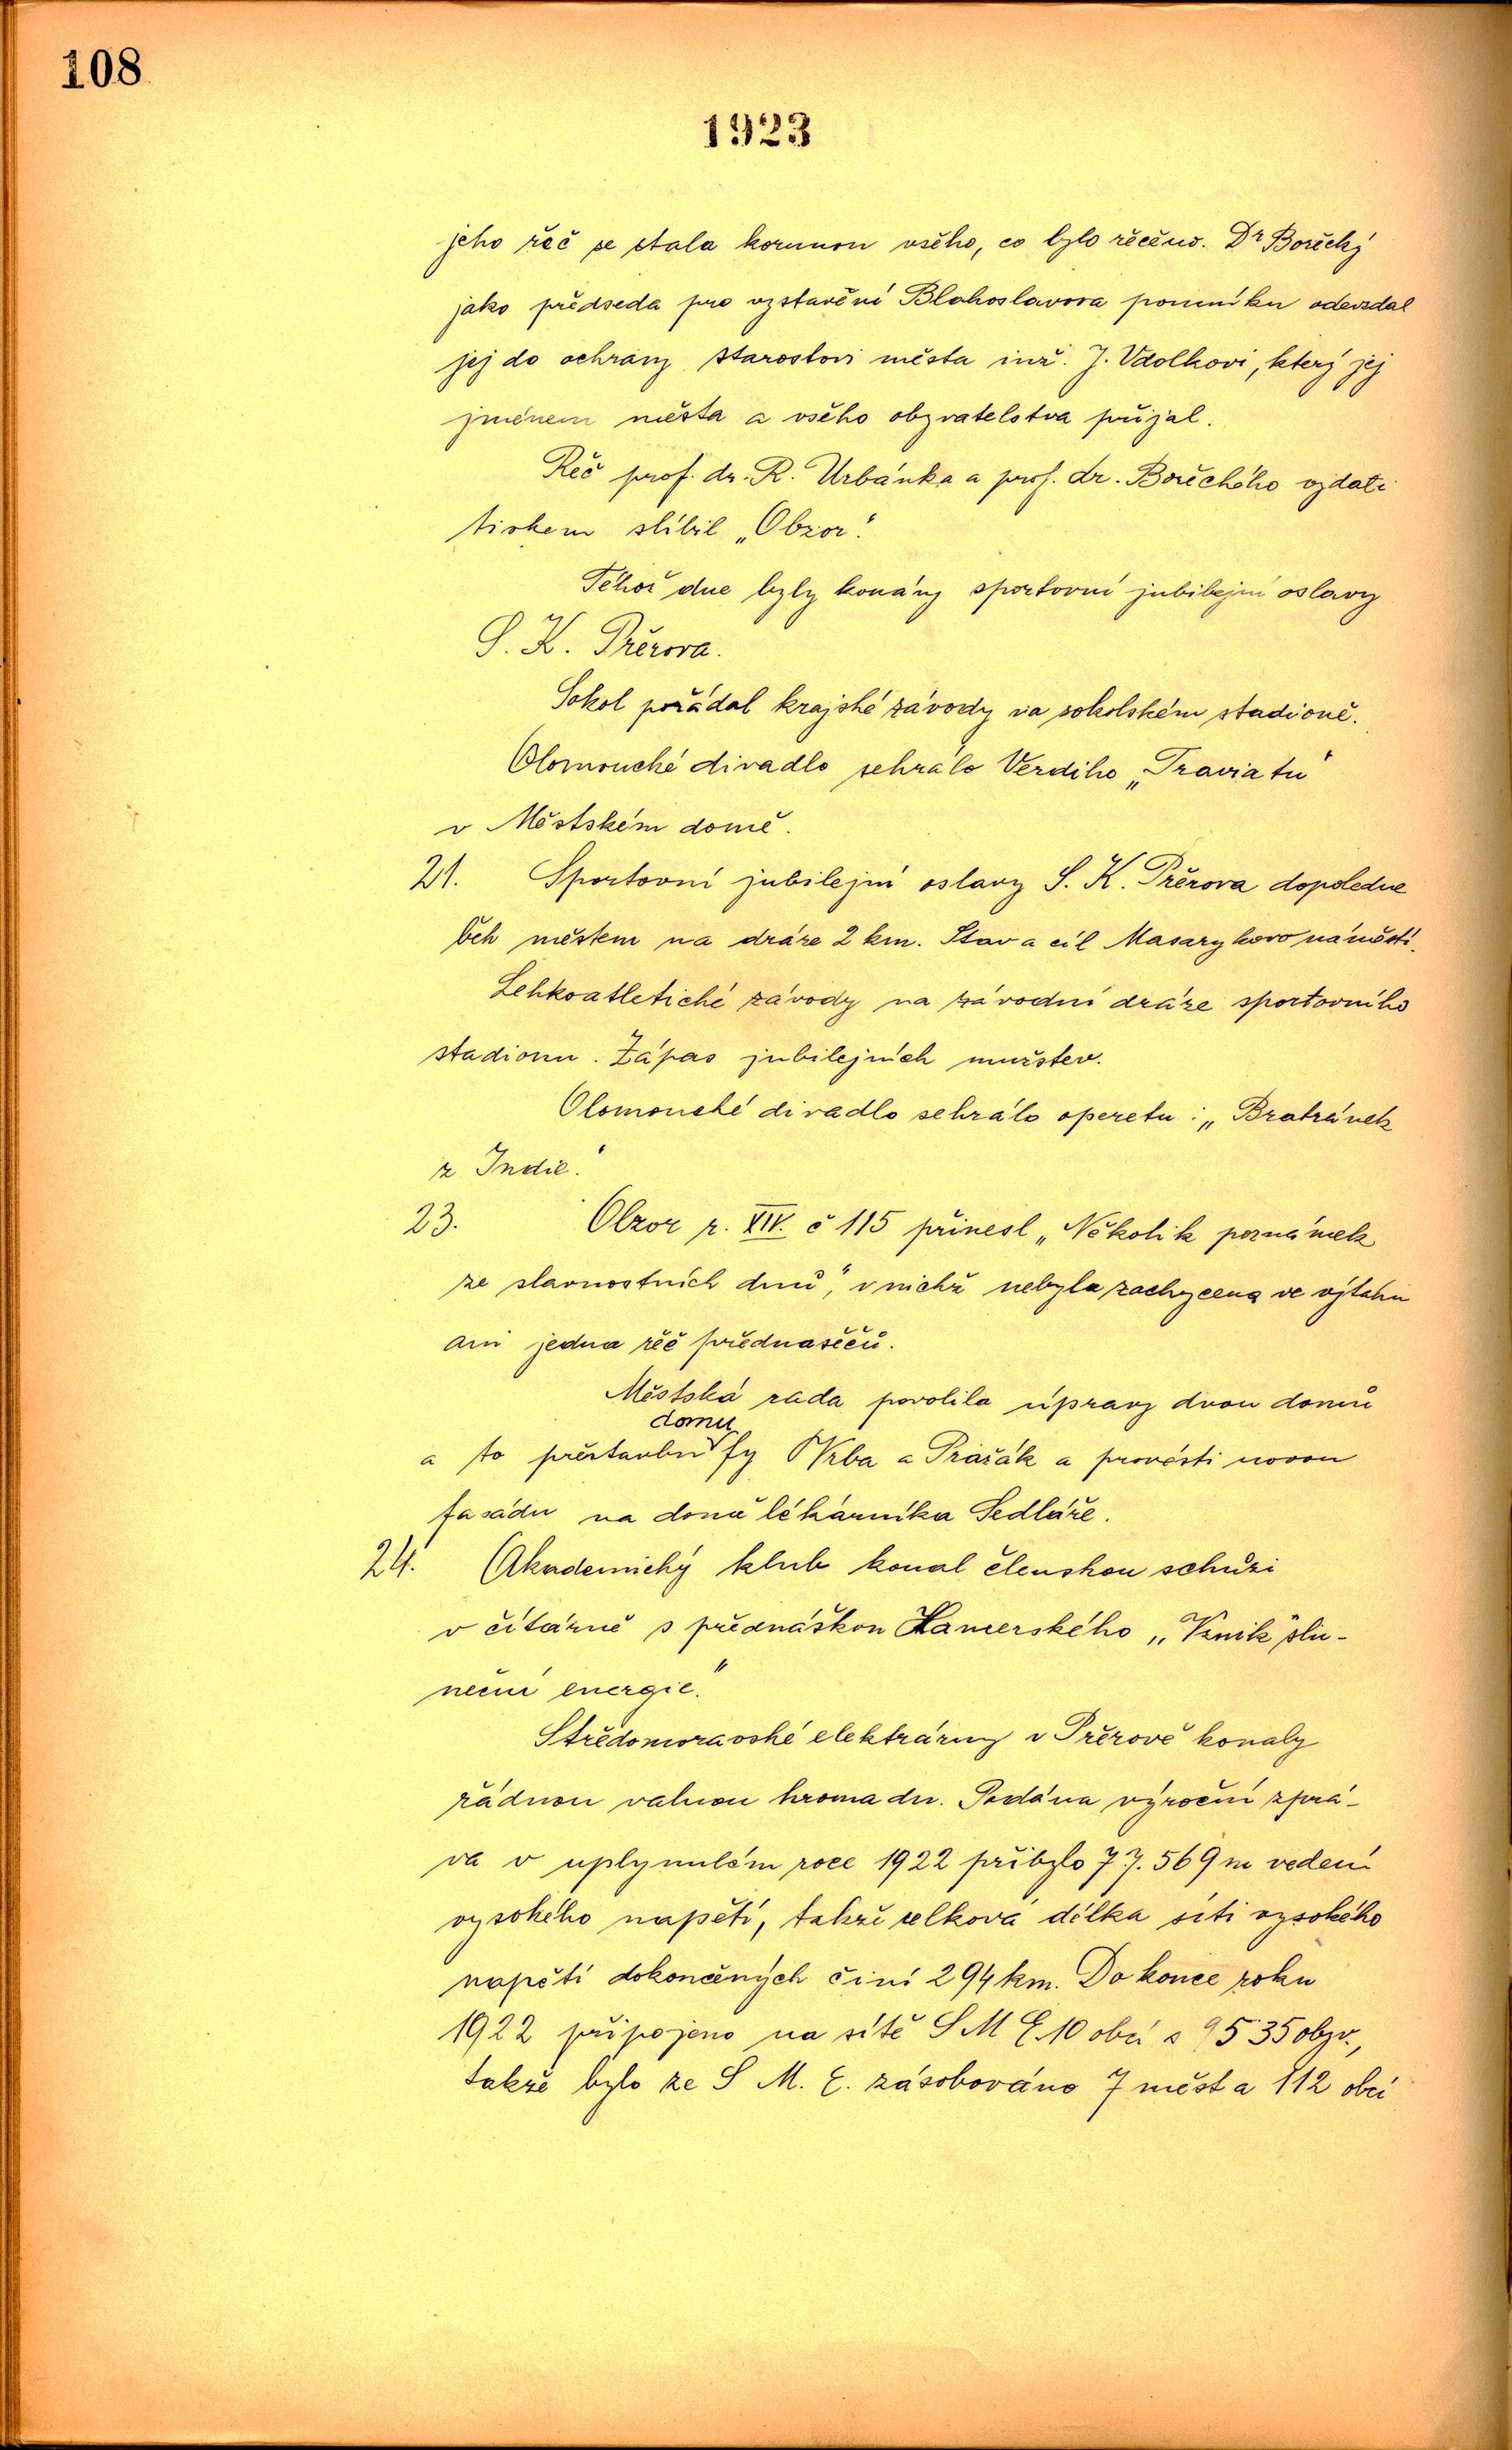 108
1923
jeho řeč se stala korunou všeho, co bylo řečeno. Dr Borěcký
jako předseda pro vzstavění Blahoslavova pomníku odevzdal
jej do ochrany starostovi města inž. J. Vdolkovi, který jej
jménem města a všeho obyvatelstva přijal.
Řeč prof. dr. R. Urbánka a prof. dr. Borěckého vydati
tiskem slíbil „Obzor.“
Téhož dne byly konány sportovní jubilejní oslavy
S. K. Přerova.
Sokol pořádal krajské závody na sokolském stadioně.
Olomoucké divadlo sehrálo Verdiho „Traviatu“
v Městském domě.
21. Sportovní jubilejní oslavy S. K. Přerova dopoledne
běh městem na dráze 2 km. Stav a cíl Masarykovo náměstí.
Lehkoatletické závody na závodní dráze sportovního
stadionu. Zápas jubilejních mužstev.
Olomoucké divadlo sehrálo operetu: „Bratránek
z Indie.“
23. Obzor r. XIV. č 115 přinesl „Několik poznámek
ze slavnostních dnů“, v nichž nebyla zachycena ve výtahu
ani jedna řeč přednašečů.
Městská rada povolila úpravy dvou domů
a to přestavbu domu fy Vrba a Pražák a provésti novou
fasádu na domě lékárníka Sedláře.
24. Akademický klub konal členskou schůzi
v čítárně s přednáškou Hamerského „Vznik slu-
neční energie.“
Středomoravské elektrárny v Přerově konaly
řádnou valnou hromadu. Podána výroční zprá-
va v uplynulém roce 1922 přibylo 77.569 m vedení
vysokého napětí, takže celková délka síti vysokého
napětí dokončených činí 294 km. Do konce roku
1922 připojeno na sítě S M E. 10 obcí s 9535 obyv.,
takže bylo ze S M. E. zásobováno 7 měst a 112 obcí